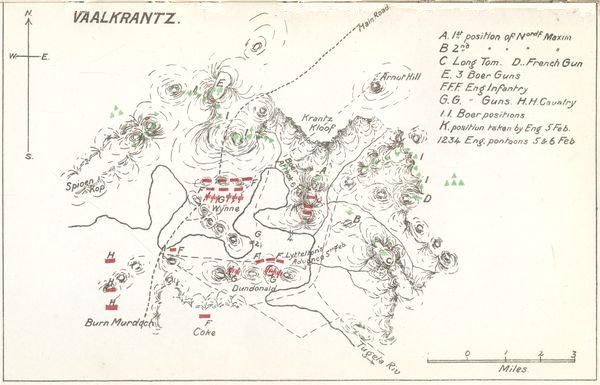 VAALKRANTZ.
N.
W
E.
S.
Main Road.
A. 1st position of Nordf Maxim
B 2nd " " " "
C Long Tom. D.. French Gun
E. 3 Boer Guns
F.F.F. Eng Infantry
G.G. " Guns. H.H. Cavalry
I.I. Boer positions
K. position taken by Eng 5 Feb.
1 2 3 4 Eng. pontoons 5 & 6 Feb
Arnot Hill
Krantz Kloof
E
I
I
I
D
A
B
Spioen Kop
F
F
G
Wynne
G
F
F
F
Lyttelton's
Advance 5th Feb
G
G
Dundonald
H
H
H
Burn Murdoch
F
Coke
Tugela Riv
0 1 2 3
Miles.